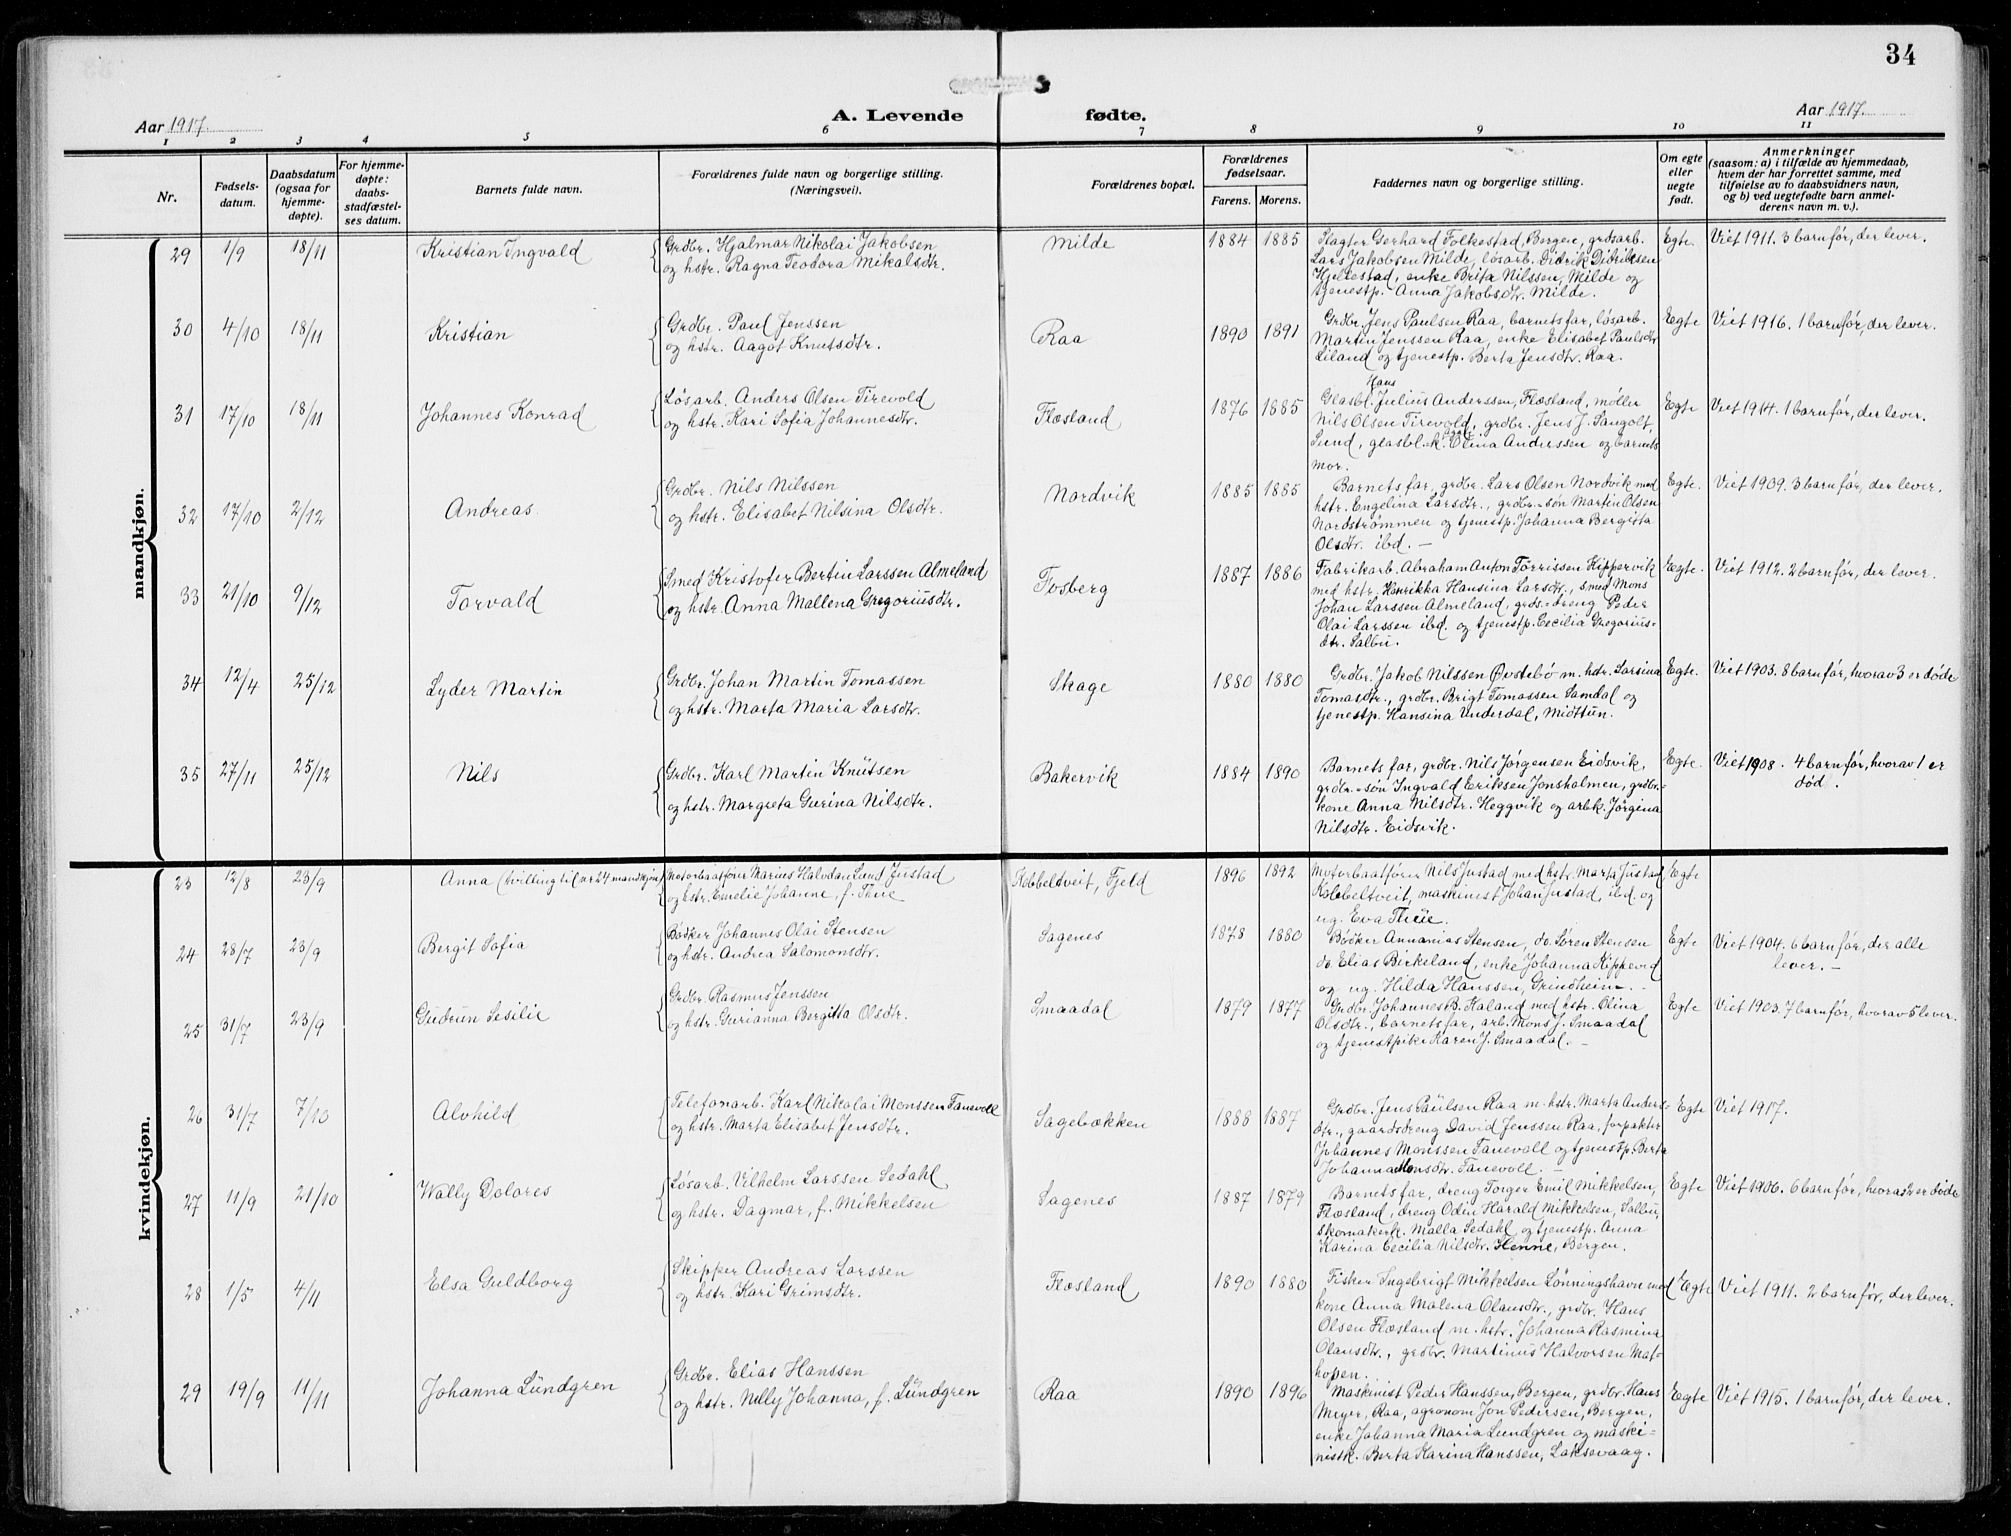 34
Aar 1917.
A. Levende fødte.
Aar 1917.
1 2 3 4 5 6 7 8 9 10 11
Nr.
Fødsels-
datum.
Daabsdatum
(ogsaa for
hjemme-
døpte).
For hjemme-
døpte:
daabs-
stadfæstel-
ses datum.
Barnets fulde navn.
Forældrenes fulde navn og borgerlige stilling.
(Næringsvei).
Forældrenes bopæl.
Forældrenes
fødselsaar.
Farens. Morens.
Faddernes navn og borgerlige stilling.
Om egte
eller
uegte
født.
Anmerkninger
(saasom: a) i tilfælde av hjemmedaab,
hvem der har forrettet samme, med
tilføielse av to daabsvidners navn,
og b) ved uegtefødte barn anmel-
derens navn m. v.).
mandkjøn.
29 1/9 18/11 Kristian Ingvald
Grdbr. Hjalmar Nikolai Jakobsen
og hstr. Ragna Teodora Mikalsdtr.
Milde 1884 1885
Slagter Gerhard Folkestad, Bergen, grdsarb.
Lars Jakobsen Milde, løsarb. Didrik Didriksen
Hjellestad, enke Brita Nilssen, Milde og
tjenestp. Anna Jakobsdtr. Milde.
Egte. Viet 1911. 3 barn før, der lever.
30 4/10 18/11 Kristian
Grdbr. Paul Jenssen
og hstr. Aagot Knutsdtr.
Raa 1890 1891
Grdbr. Jens Paulsen Raa, barnets far, løsarb.
Martin Jenssen Raa, enke Elisabet Paulsdtr
Liland og tjenestp. Berta Jensdtr. Raa.
Egte Viet 1916. 1 barn før, der lever.
31 17/10 18/11 Johannes Konrad
Løsarb. Anders Olsen Tirevold
og hstr. Kari Sofia Johannesdtr.
Flæsland 1876 1885
Hans
Glasbl. Julius Anderssen, Flæsland, møller
Nils Olsen Tirevold, grdbr. Jens J. Sangolt,
Sund, glasbl.-k. Olina Anderssen og barnets
mor.
Egte Viet 1914. 1 barn før, der lever.
32 17/10 2/12 Andreas.
Grdbr. Nils Nilssen
og hstr. Elisabet Nilsina Olsdtr.
Nordvik 1885 1885
Barnets far, grdbr. Lars Olsen Nordvik med
hstr. Engelina Larsdtr., grdbr.-søn Martin Olsen
Nordstrømmen og tjenestp. Johanna Bergitta
Olsdtr. ibd. —
Egte. Viet 1909. 3 barn før, der lever.
33 21/10 9/12 Torvald
Smed Kristofer Bertin Larssen Almeland
og hstr. Anna Mallena Gregoriusdtr.
Fosberg 1887 1886
Fabrikarb. Abraham Anton Tørrissen Kippervik
med hstr. Henrikka Hansina Larsdtr., smed Mons
Johan Larssen Almeland, grds.-dreng Peder
Olai Larssen ibd. og tjenestp. Cecilia Gregorius-
dtr. Salbu.
Egte. Viet 1912. 2 barn før, der lever.
34 12/4 25/12 Lyder Martin
Grdbr. Johan Martin Tomassen
og hstr. Marta Maria Larsdtr.
Skage 1880 1880
Grdbr. Jakob Nilssen Øvstebø m. hstr. Larsina
Tomasdtr., grdbr. Brigt Tomassen Samdal og
tjenestp. Hansina Underdal, Midttun.
Egte. Viet 1903. 8 barn før, hvorav 3 er døde
35 27/11 25/12 Nils
Grdbr. Karl Martin Knutsen
og hstr. Margreta Gurina Nilsdtr.
Bakervik 1884 1890
Barnets far, grdbr. Nils Jørgensen Eidsvik,
grdbr.-søn Ingvald Eriksen Jonsholmen, grdbr.-
kone Anna Nilsdtr. Heggvik og arbk. Jørgina
Nilsdtr. Eidsvik.
Egte. Viet 1908. 4 barn før, hvorav 1 er
død.
kvindekjøn.
23 12/8 23/9 Anna (tvilling til nr 24 mandkjøn)
Motorbaatfører Marius Halvdan Lund Justad
og hstr. Emelie Johanne, f. Thue
Kobbeltveit, Fjeld 1896 1892
Motorbaatfører Nils Justad med hstr. Marta Justad
Kobbeltveit, maskinist Johan Justad, ibd. og
ug. Eva Thue.
Egte
24 28/7 23/9 Bergit Sofia
Bødker Johannes Olai Stensen
og hstr. Andrea Salomonsdtr.
Sagenes 1878 1880
Bødker Annanias Stensen, do. Søren Stensen
do. Elias Birkeland, enke Johanna Kippevid
og ug. Hilda Hanssen, Grindheim.
Egte Viet 1904. 6 barn før, der alle
lever. —
25 31/7 23/9 Gudrun Sesilie
Grdbr. Rasmus Jenssen
og hstr. Gurianna Bergitta Olsdtr.
Smaadal 1879 1877
Grdbr. Johannes B. Haland med hstr. Olina
Olsdtr., barnets far, arb. Mons J. Smaadal
og tjenestpike Karen J. Smaadal. —
Egte Viet 1903. 7 barn før, hvorav 5 lever.
26 31/7 7/10 Alvhild
Telefonarb. Karl Nikolai Monssen Fanevoll
og hstr. Marta Elisabet Jensdtr.
Sagebækken 1888 1887
Grdbr. Jens Paulsen Raa m. hstr. Marta Anders-
dtr., gaardsdreng David Jenssen Raa, forpakter
Johannes Monssen Fanevoll og tjenestp. Berta
Johanna Monsdtr. Fanevoll. —
Egte Viet 1917.
27 11/9 21/10 Wally Dolores
Løsarb. Vilhelm Larssen Sedahl
og hstr. Dagmar, f. Mikkelsen
Sagenes 1887 1879
Barnets far, dreng Torger Emil Mikkelsen,
Flæsland, dreng Odin Harald Mikkelsen, Salbu,
skomakerk. Malla Sedahl og tjenestp. Anna
Karina Cecilia Nilsdtr. Henne, Bergen.
Egte Viet 1906. 6 barn før, hvorav 2 er døde
28 1/5 4/11 Elsa Guldborg
Skipper Andreas Larssen
og hstr. Kari Grimsdtr.
Flæsland 1890 1880
Fisker Ingebrigt Mikkelsen Lønningshavn med
kone Anna Malena Olausdtr., grdbr. Hans
Olsen Flæsland m. hstr. Johanna Rasmina
Olausdtr., grdbr. Martinus Halvorsen Mat-
hopen.
Egte Viet 1911. 2 barn før, der lever.
29 19/9 11/11 Johanna Lundgren
Grdbr. Elias Hanssen
og hstr. Nelly Johanna, f. Lundgren
Raa 1890 1896
Maskinist Peder Hanssen, Bergen, grdbr. Hans
Meyer, Raa, agronom Jon Pedersen, Bergen,
enke Johanna Maria Lundgren og maski-
nistk. Berta Karina Hanssen, Laksevaag.
Egte Viet 1915. 1 barn før, der lever.